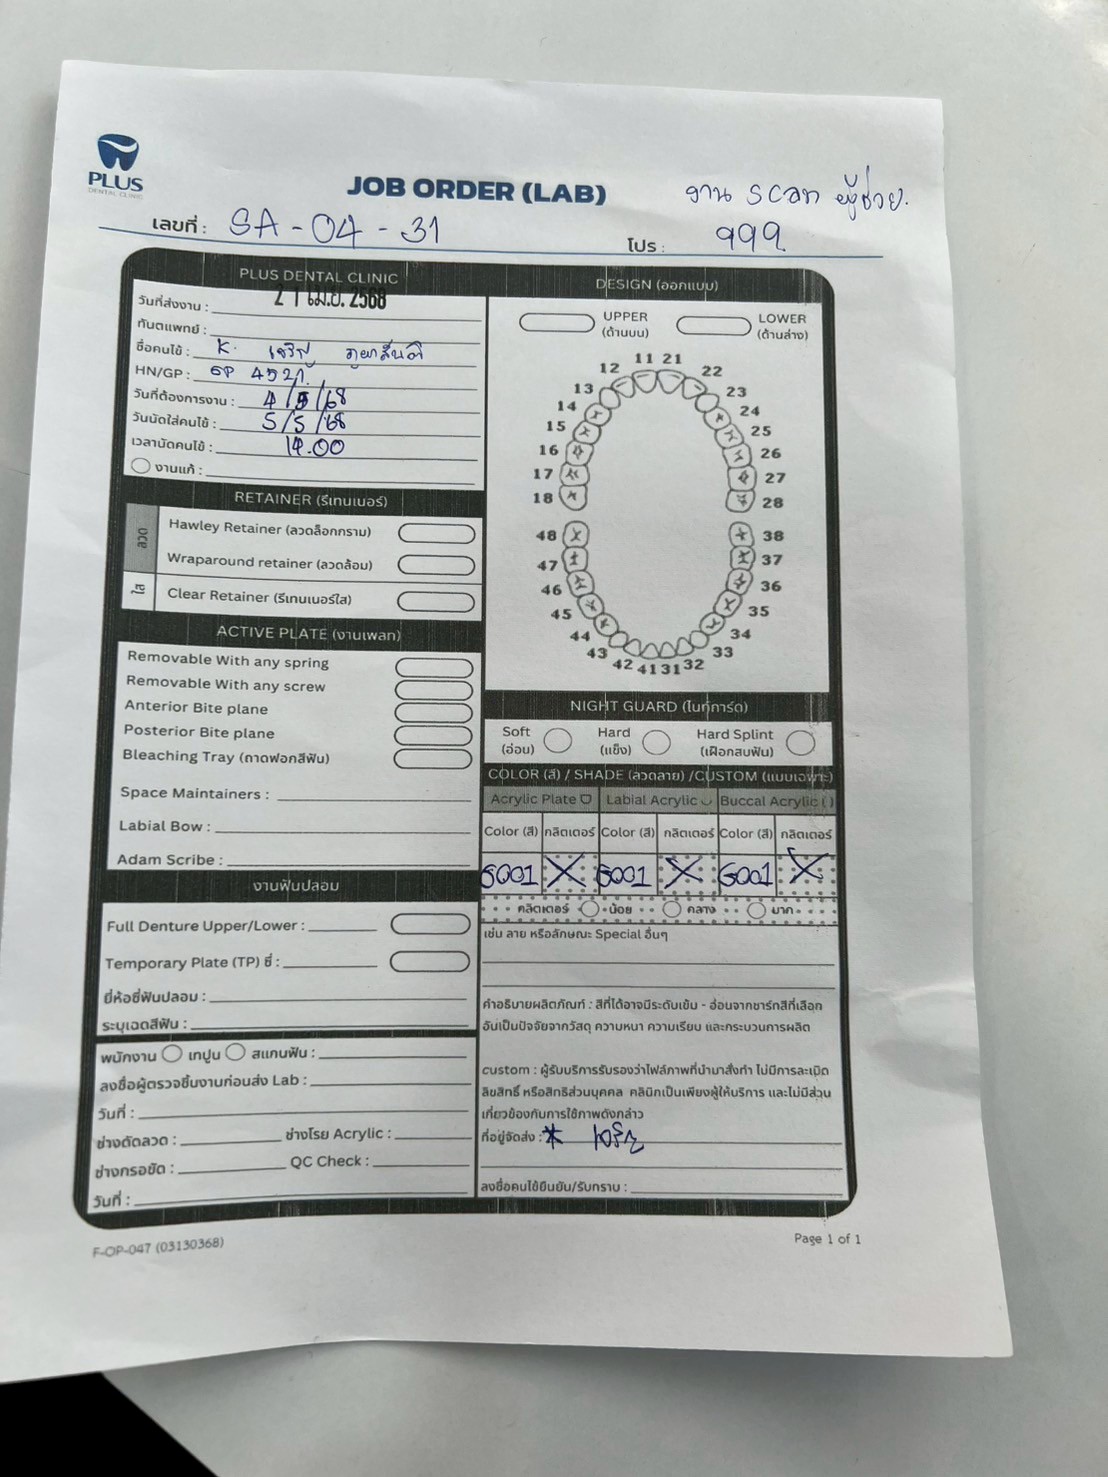 PLUS
DENTAL CLINIC
JOB ORDER (LAB)
งาน scan ผู้ช่วย.
เลขที่ : SA - 04 - 31
โปร : 999
PLUS DENTAL CLINIC
วันที่ส่งงาน : 21 เม.ย. 2568
ทันตแพทย์ :
ชื่อคนไข้ : K. เจริญ
HN/GP : GP 4521
วันที่ต้องการงาน : 4/5/68
วันนัดใส่คนไข้ : 5/5/68
เวลานัดคนไข้ : 14.00
งานแก้ :
RETAINER (รีเทนเนอร์)
ลวด
Hawley Retainer (ลวดล็อกกราม)
Wraparound retainer (ลวดล้อม)
ใส
Clear Retainer (รีเทนเนอร์ใส)
ACTIVE PLATE (งานเพลท)
Removable With any spring
Removable With any screw
Anterior Bite plane
Posterior Bite plane
Bleaching Tray (ถาดฟอกสีฟัน)
Space Maintainers :
Labial Bow :
Adam Scribe :
งานฟันปลอม
Full Denture Upper/Lower :
Temporary Plate (TP) ซี่ :
ยี่ห้อซี่ฟันปลอม :
ระบุเฉดสีฟัน :
พนักงาน เทปูน สแกนฟัน :
ลงชื่อผู้ตรวจชิ้นงานก่อนส่ง Lab :
วันที่ :
ช่างดัดลวด : ช่างโรย Acrylic :
ช่างกรอขัด : QC Check :
วันที่ :
DESIGN (ออกแบบ)
UPPER
(ด้านบน)
LOWER
(ด้านล่าง)
11 21
12 22
13 23
14 24
15 25
16 26
17 27
18 28
48 38
47 37
46 36
45 35
44 34
43 33
42 41 31 32
NIGHT GUARD (ไนท์การ์ด)
Soft
(อ่อน)
Hard
(แข็ง)
Hard Splint
(เฝือกสบฟัน)
COLOR (สี) / SHADE (ลวดลาย) /CUSTOM (แบบเฉพาะ)
Acrylic Plate Labial Acrylic Buccal Acrylic ( )
Color (สี) กลิตเตอร์ Color (สี) กลิตเตอร์ Color (สี) กลิตเตอร์
G001 X G001 X G001 X
กลิตเตอร์ น้อย กลาง มาก
เช่น ลาย หรือลักษณะ Special อื่นๆ
คำอธิบายผลิตภัณฑ์ : สีที่ได้อาจมีระดับเข้ม - อ่อนจากชาร์ทสีที่เลือก
อันเป็นปัจจัยจากวัสดุ ความหนา ความเรียบ และกระบวนการผลิต
custom : ผู้รับบริการรับรองว่าไฟล์ภาพที่นำมาสั่งทำ ไม่มีการละเมิด
ลิขสิทธิ์ หรือสิทธิส่วนบุคคล คลินิกเป็นเพียงผู้ให้บริการ และไม่มีส่วน
เกี่ยวข้องกับการใช้ภาพดังกล่าว
ที่อยู่จัดส่ง : * เจริญ
ลงชื่อคนไข้ยืนยัน/รับทราบ :
F-OP-047 (03130368)
Page 1 of 1